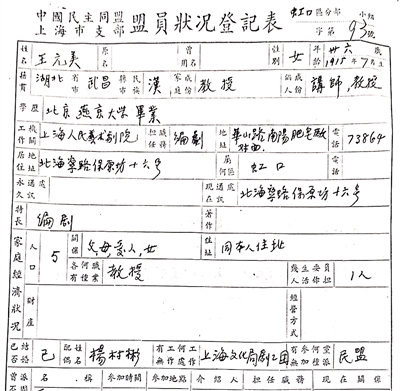 中國民主同盟
上海市支部
盟員狀况登記表
虹口區分部
字第93號
姓名 王元美 原名 曾用名 性别 女 年齡 卅六歲 1915年7月生
籍貫 湖北省市 武昌縣市 民族 漢 家庭成份 教授 個人成份 講師,教授
學歷 北京燕京大學畢業
工作機關 上海人民藝術劇院 担任職務 編劇 地址 華山路 電話 73864
居住地址 北海寧路保原坊十六号 屬何區 虹口 電話
永久通訊處 現在通訊處 北海寧路保原坊十六号
特長 編劇 著作
家庭經濟狀况 人口 5 關係 父,母,愛人,女 住址 同本人住址
各有何種職業 教授 幾人生活 委員担任 1人
財產 經營方式
已否結婚 已 配偶姓名 楊村彬 有無工作 何處工作 上海文化局劇工团 有無參加何黨派 民盟
曾 名稱 參加時間 參加地點 介紹人 担任職務 現在關係